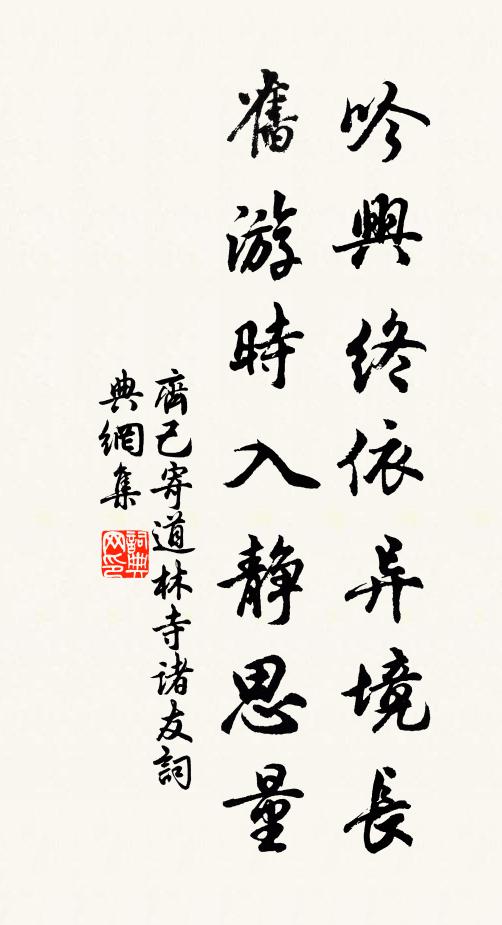 吟興終依异境長
舊游時入静思量
齊己寄道林寺诸友詞
典網集
詞典网印